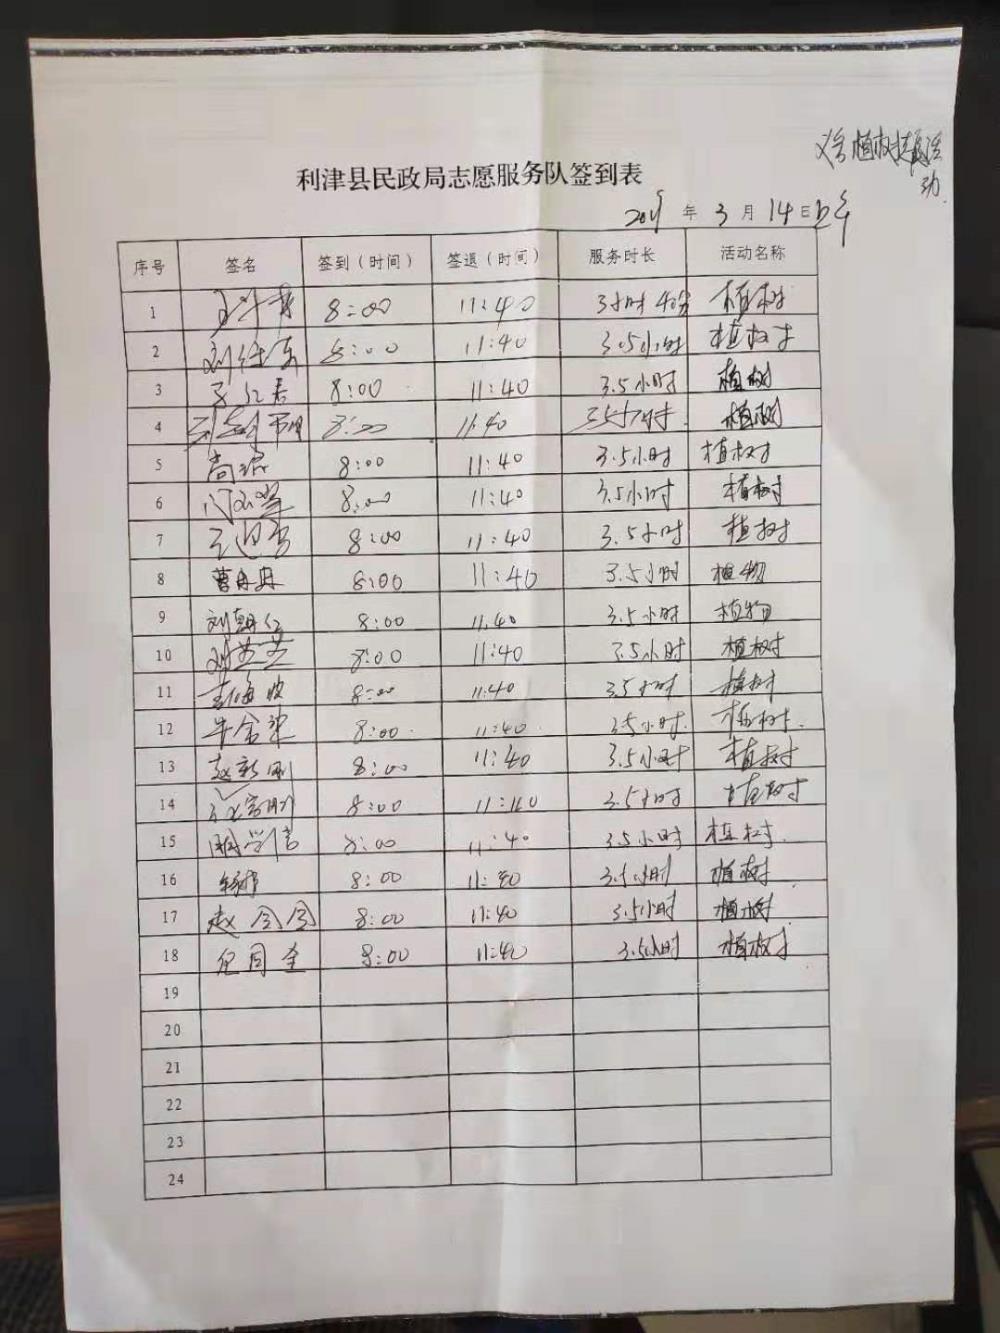 植树
动
利津县民政局志愿服务队签到表
年 3 月 14 日
序号 签名 签到（时间） 签退（时间） 服务时长 活动名称
1 8:00 11:40 3小时40分 植树
2 8:00 11:40 3.5小时 植树
3 8:00 11:40 3.5小时 植树
4 8:00 11:40 3.5小时 植树
5 尚 8:00 11:40 3.5小时 植树
6 8:00 11:40 3.5小时 植树
7 8:00 11:40 3.5小时 植树
8 曹丹丹 8:00 11:40 3.5小时 植物
9 刘朝 8:00 11:40 3.5小时 植物
10 刘 8:00 11:40 3.5小时 植树
11 海波 8:00 11:40 3.5小时 植树
12 牛金 8:00 11:40 3.5小时 植树
13 赵新刚 8:00 11:40 3.5小时 植树
14 8:00 11:40 3.5小时 植树
15 学信 8:00 11:40 3.5小时 植树
16 8:00 11:40 3.5小时 植树
17 赵令令 8:00 11:40 3.5小时 植树
18 同全 8:00 11:40 3.5小时 植树
19
20
21
22
23
24